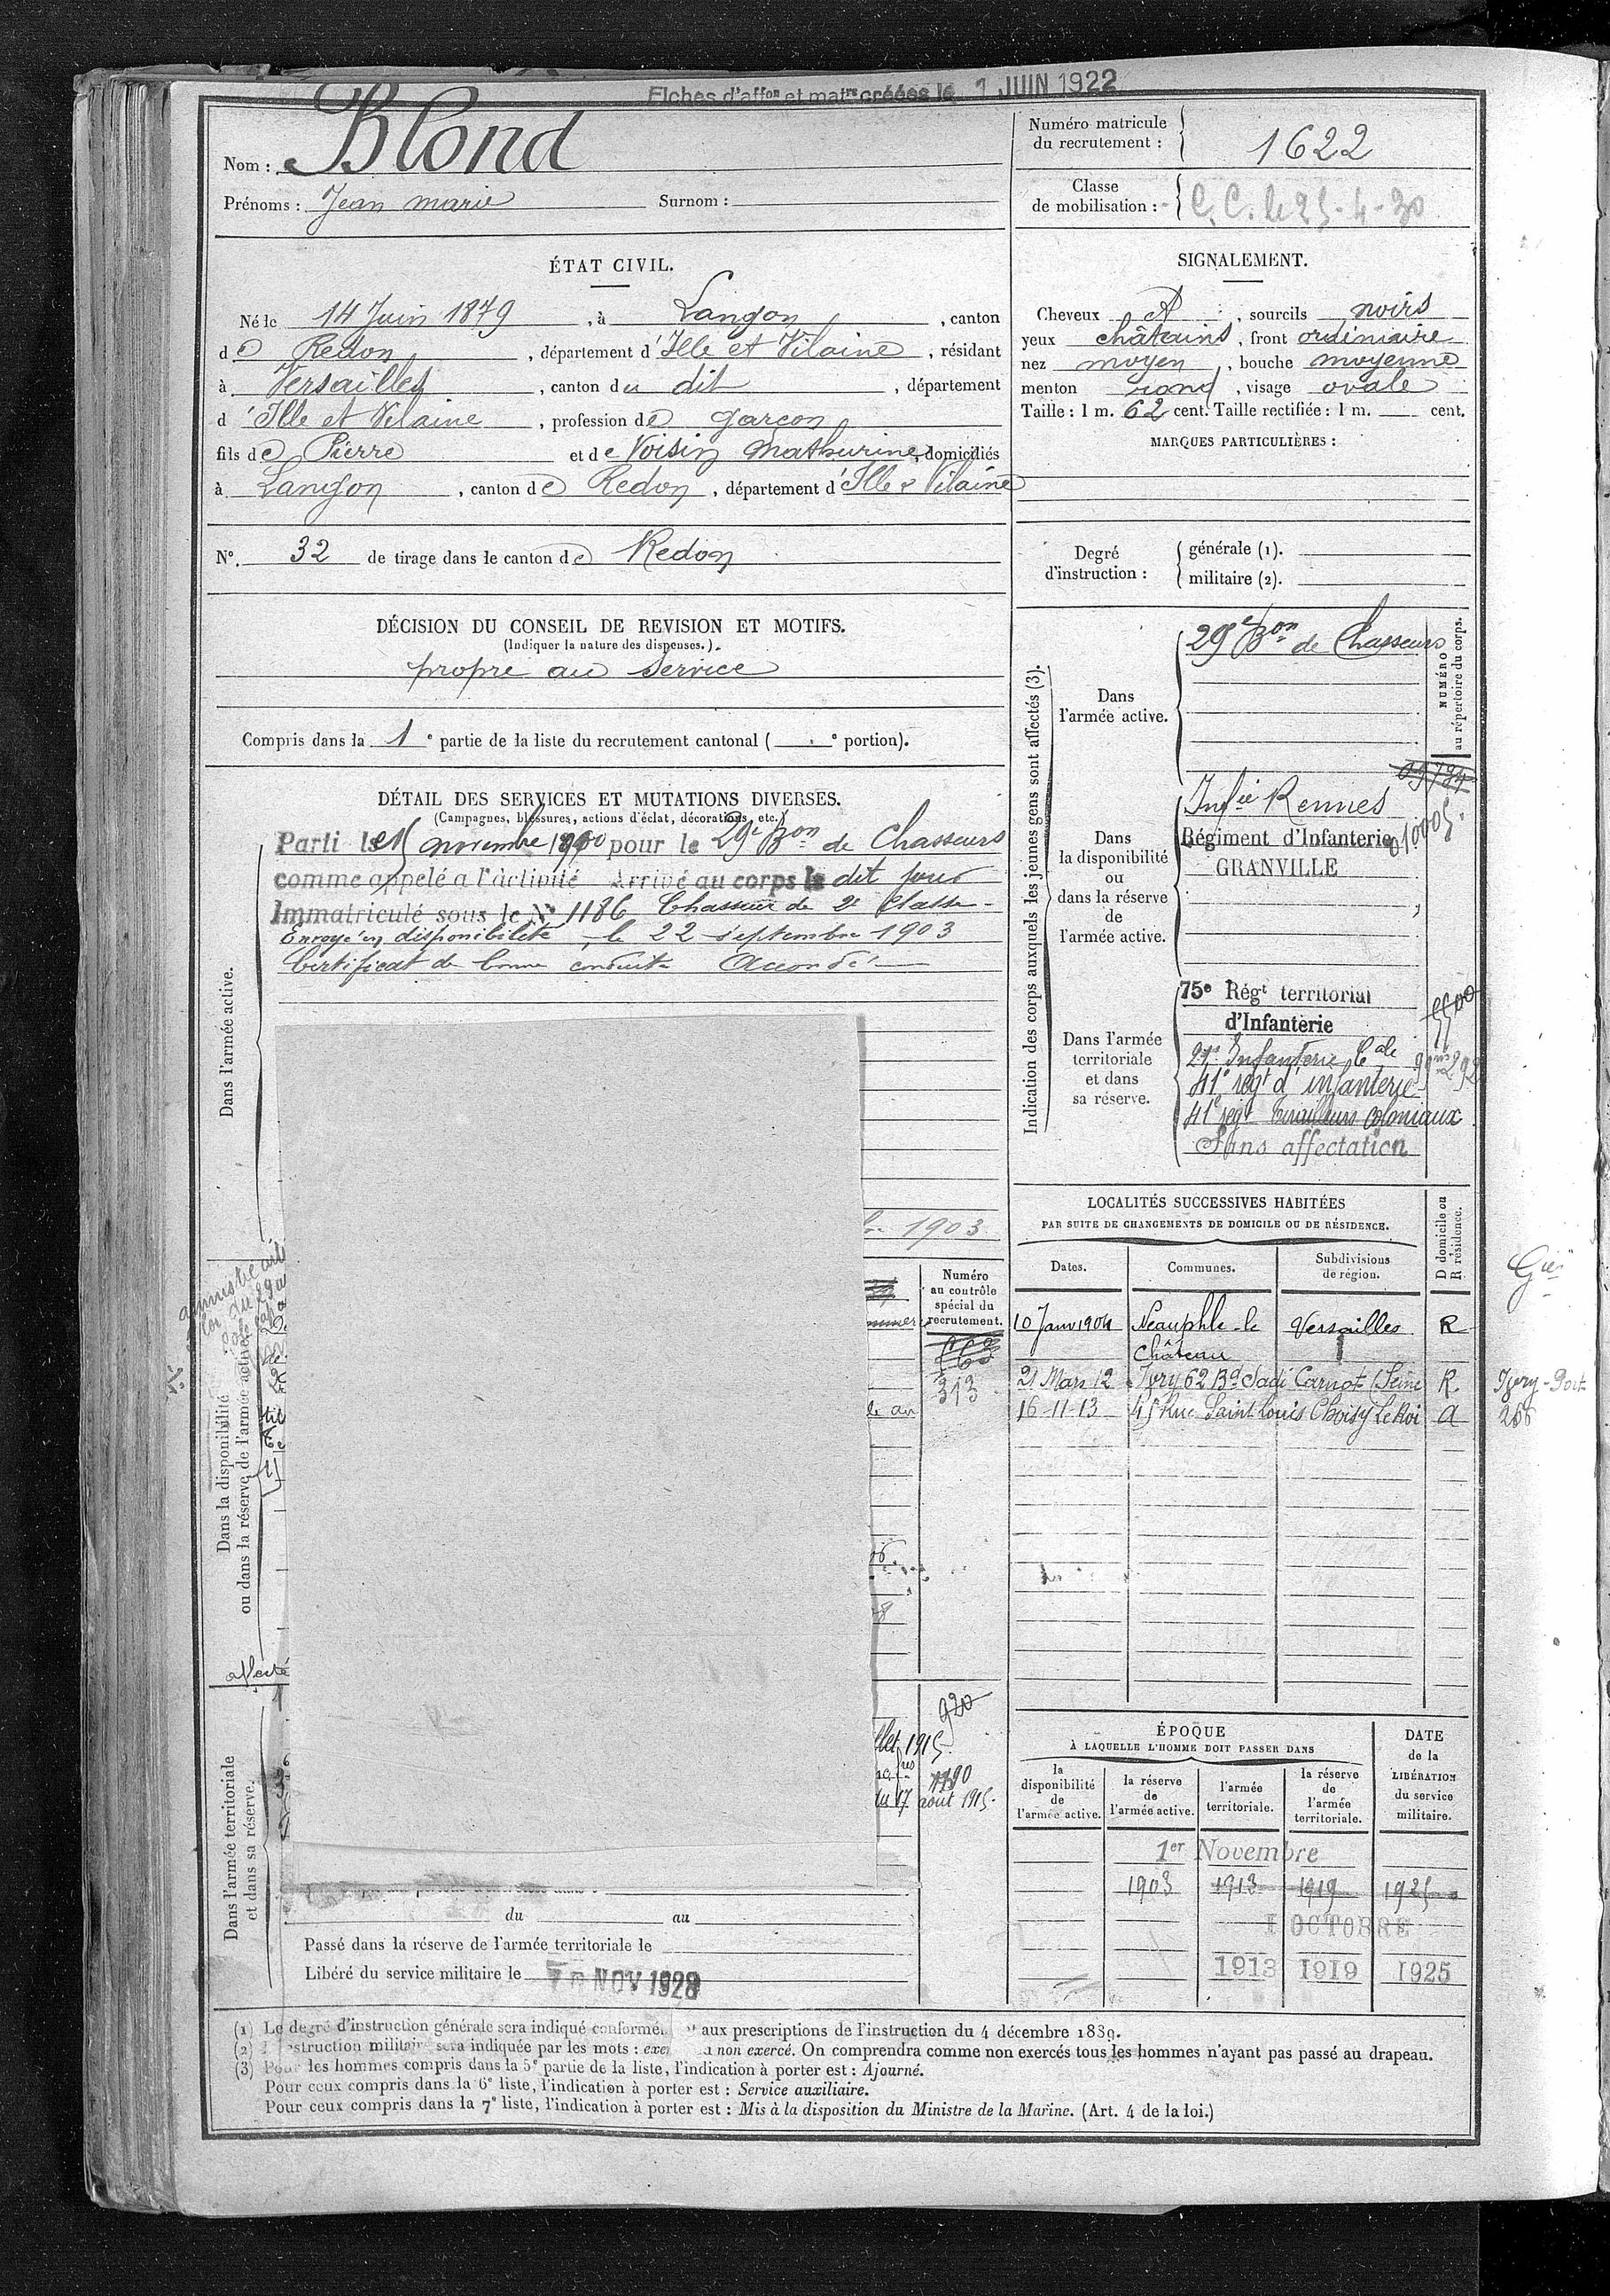 Fiches d'affon et matre créées le 1 JUIN 1922
Nom : Blond
Prénoms : Jean marie Surnom :
Numéro matricule du recrutement : 1622
Classe de mobilisation : C. C. le 25-4-30
ÉTAT CIVIL.
Né le 14 Juin 1879, à Langon, canton
de Redon, département d'Ille et Vilaine, résidant
à Versailles, canton du dit, département
d'Ille et Vilaine, profession de garçon
fils de Pierre et de Voisin Mathurine, domiciliés
à Langon, canton de Redon, département d'Ille & Vilaine
N°. 32 de tirage dans le canton de Redon
SIGNALEMENT.
Cheveux , sourcils noirs
yeux châtains, front ordinaire
nez moyen, bouche moyenne
menton rond, visage ovale
Taille : 1 m. 62 cent. Taille rectifiée : 1 m. cent.
MARQUES PARTICULIÈRES :
Degré d'instruction : générale (1).
militaire (2).
DÉCISION DU CONSEIL DE REVISION ET MOTIFS.
(Indiquer la nature des dispenses.)
propre au service
Compris dans la 1e partie de la liste du recrutement cantonal ( e portion).
DÉTAIL DES SERVICES ET MUTATIONS DIVERSES.
(Campagnes, blessures, actions d'éclat, décorations, etc.)
Parti le 15 novembre 1900 pour le 29e Bon de Chasseurs
comme appelé a l'activité Arrivé au corps le dit jour
Immatriculé sous le N° 1186 Chasseur de 2e classe
Envoyé en disponibilité le 22 septembre 1903
Certificat de bonne conduite Accordé
Dans l'armée active.
1903
Dans la disponibilité
ou dans la réserve de l'armée active.
affecté
Numéro
au contrôle
spécial du
recrutement.
313
920
llet 1915
1190
du 17 août 1915
Dans l'armée territoriale
et dans sa réserve.
du au
Passé dans la réserve de l'armée territoriale le
Libéré du service militaire le NOV 1928
Indication des corps auxquels les jeunes gens sont affectés (3).
NUMÉRO
au répertoire du corps.
Dans
l'armée active.
29e Bon de Chasseurs
Dans
la disponibilité
ou
dans la réserve
de
l'armée active.
Infie Rennes
Régiment d'Infanterie
GRANVILLE
010005
Dans l'armée
territoriale
et dans
sa réserve.
75e Régt territorial
d'Infanterie
5500
21e Infanterie Cale
41e regt d'infanterie
41e regt tirailleurs coloniaux
Sans affectation
LOCALITÉS SUCCESSIVES HABITÉES
PAR SUITE DE CHANGEMENTS DE DOMICILE OU DE RÉSIDENCE.
Dates. Communes. Subdivisions de région. D domicile ou R résidence.
10 Janv 1904 Neauphle-le Château Versailles R
21 Mars 12 Ivry 62 Bd Sadi Carnot (Seine R
16-11-13 45 Rue Saint Louis Choisy le Roi
ÉPOQUE
À LAQUELLE L'HOMME DOIT PASSER DANS
DATE
de la
LIBÉRATION
du service
militaire.
la disponibilité de l'armée active.
la réserve de l'armée active.
l'armée territoriale.
la réserve de l'armée territoriale.
1er Novembre
1903 1913 1919 1925
1 OCTOBRE
1913 1919 1925
(1) Le degré d'instruction générale sera indiqué conformém aux prescriptions de l'instruction du 4 décembre 1889.
(2) struction militair sera indiquée par les mots : exer non exercé. On comprendra comme non exercés tous les hommes n'ayant pas passé au drapeau.
(3) Pour les hommes compris dans la 5e partie de la liste, l'indication à porter est : Ajourné.
Pour ceux compris dans la 6e liste, l'indication à porter est : Service auxiliaire.
Pour ceux compris dans la 7e liste, l'indication à porter est : Mis à la disposition du Ministre de la Marine. (Art. 4 de la loi.)